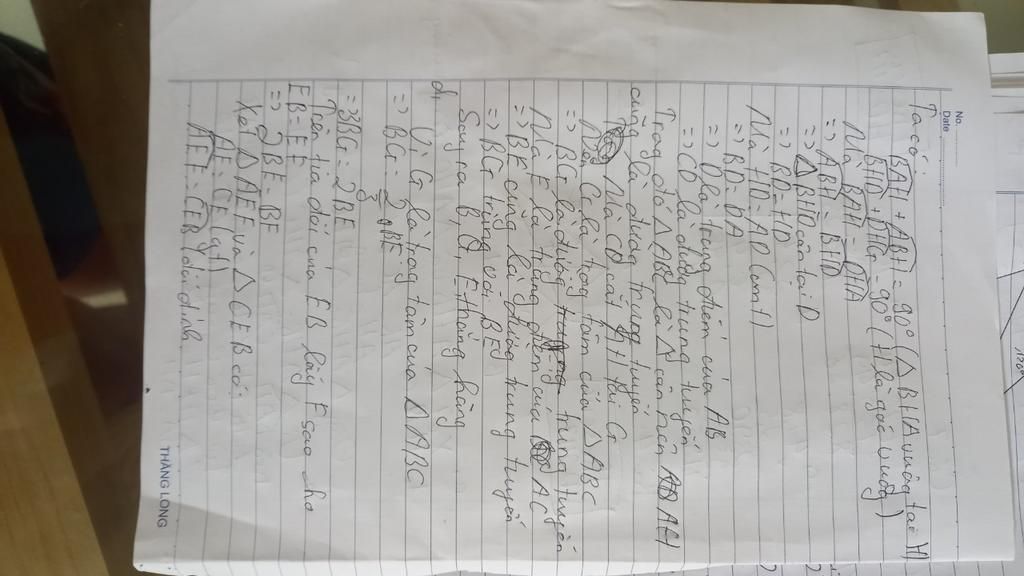 No.
Date
Ta có: BAH + ABH = 90° (Δ BHA vuông tại H)
BHD + DHA = 90° (H là góc vuông)
Mà BAH = DHA
=> ABH = BHD
=> Δ BHD cân tại D
=> BD = HD
Mà HD = AD (cmt)
=> BD = DA
=> D là trung điểm của AB
=> CD là đường trung tuyến
Trong đó Δ ABC là Δ cân nên AH
cũng là đường trung tuyến
Mà CD cắt AH tại G
=> G là trọng tâm của Δ ABC
=> BG là đường trung tuyến
Mà E là trung điểm của AC
=> BE cũng là đường trung tuyến
=> BG trùng với BE
Suy ra B, G, E thẳng hàng
d,
Vì G là trọng tâm của Δ ABC
=> BG = 2/3 BE
=> 3BG = 2BE
Trên tia đối của EB lấy F sao cho
EB = EF
=> 2BE = BF
Xét Δ AEF và Δ CEB có:
AE = CE (gt)
AEF = CEB (đối đỉnh)
THANG LONG